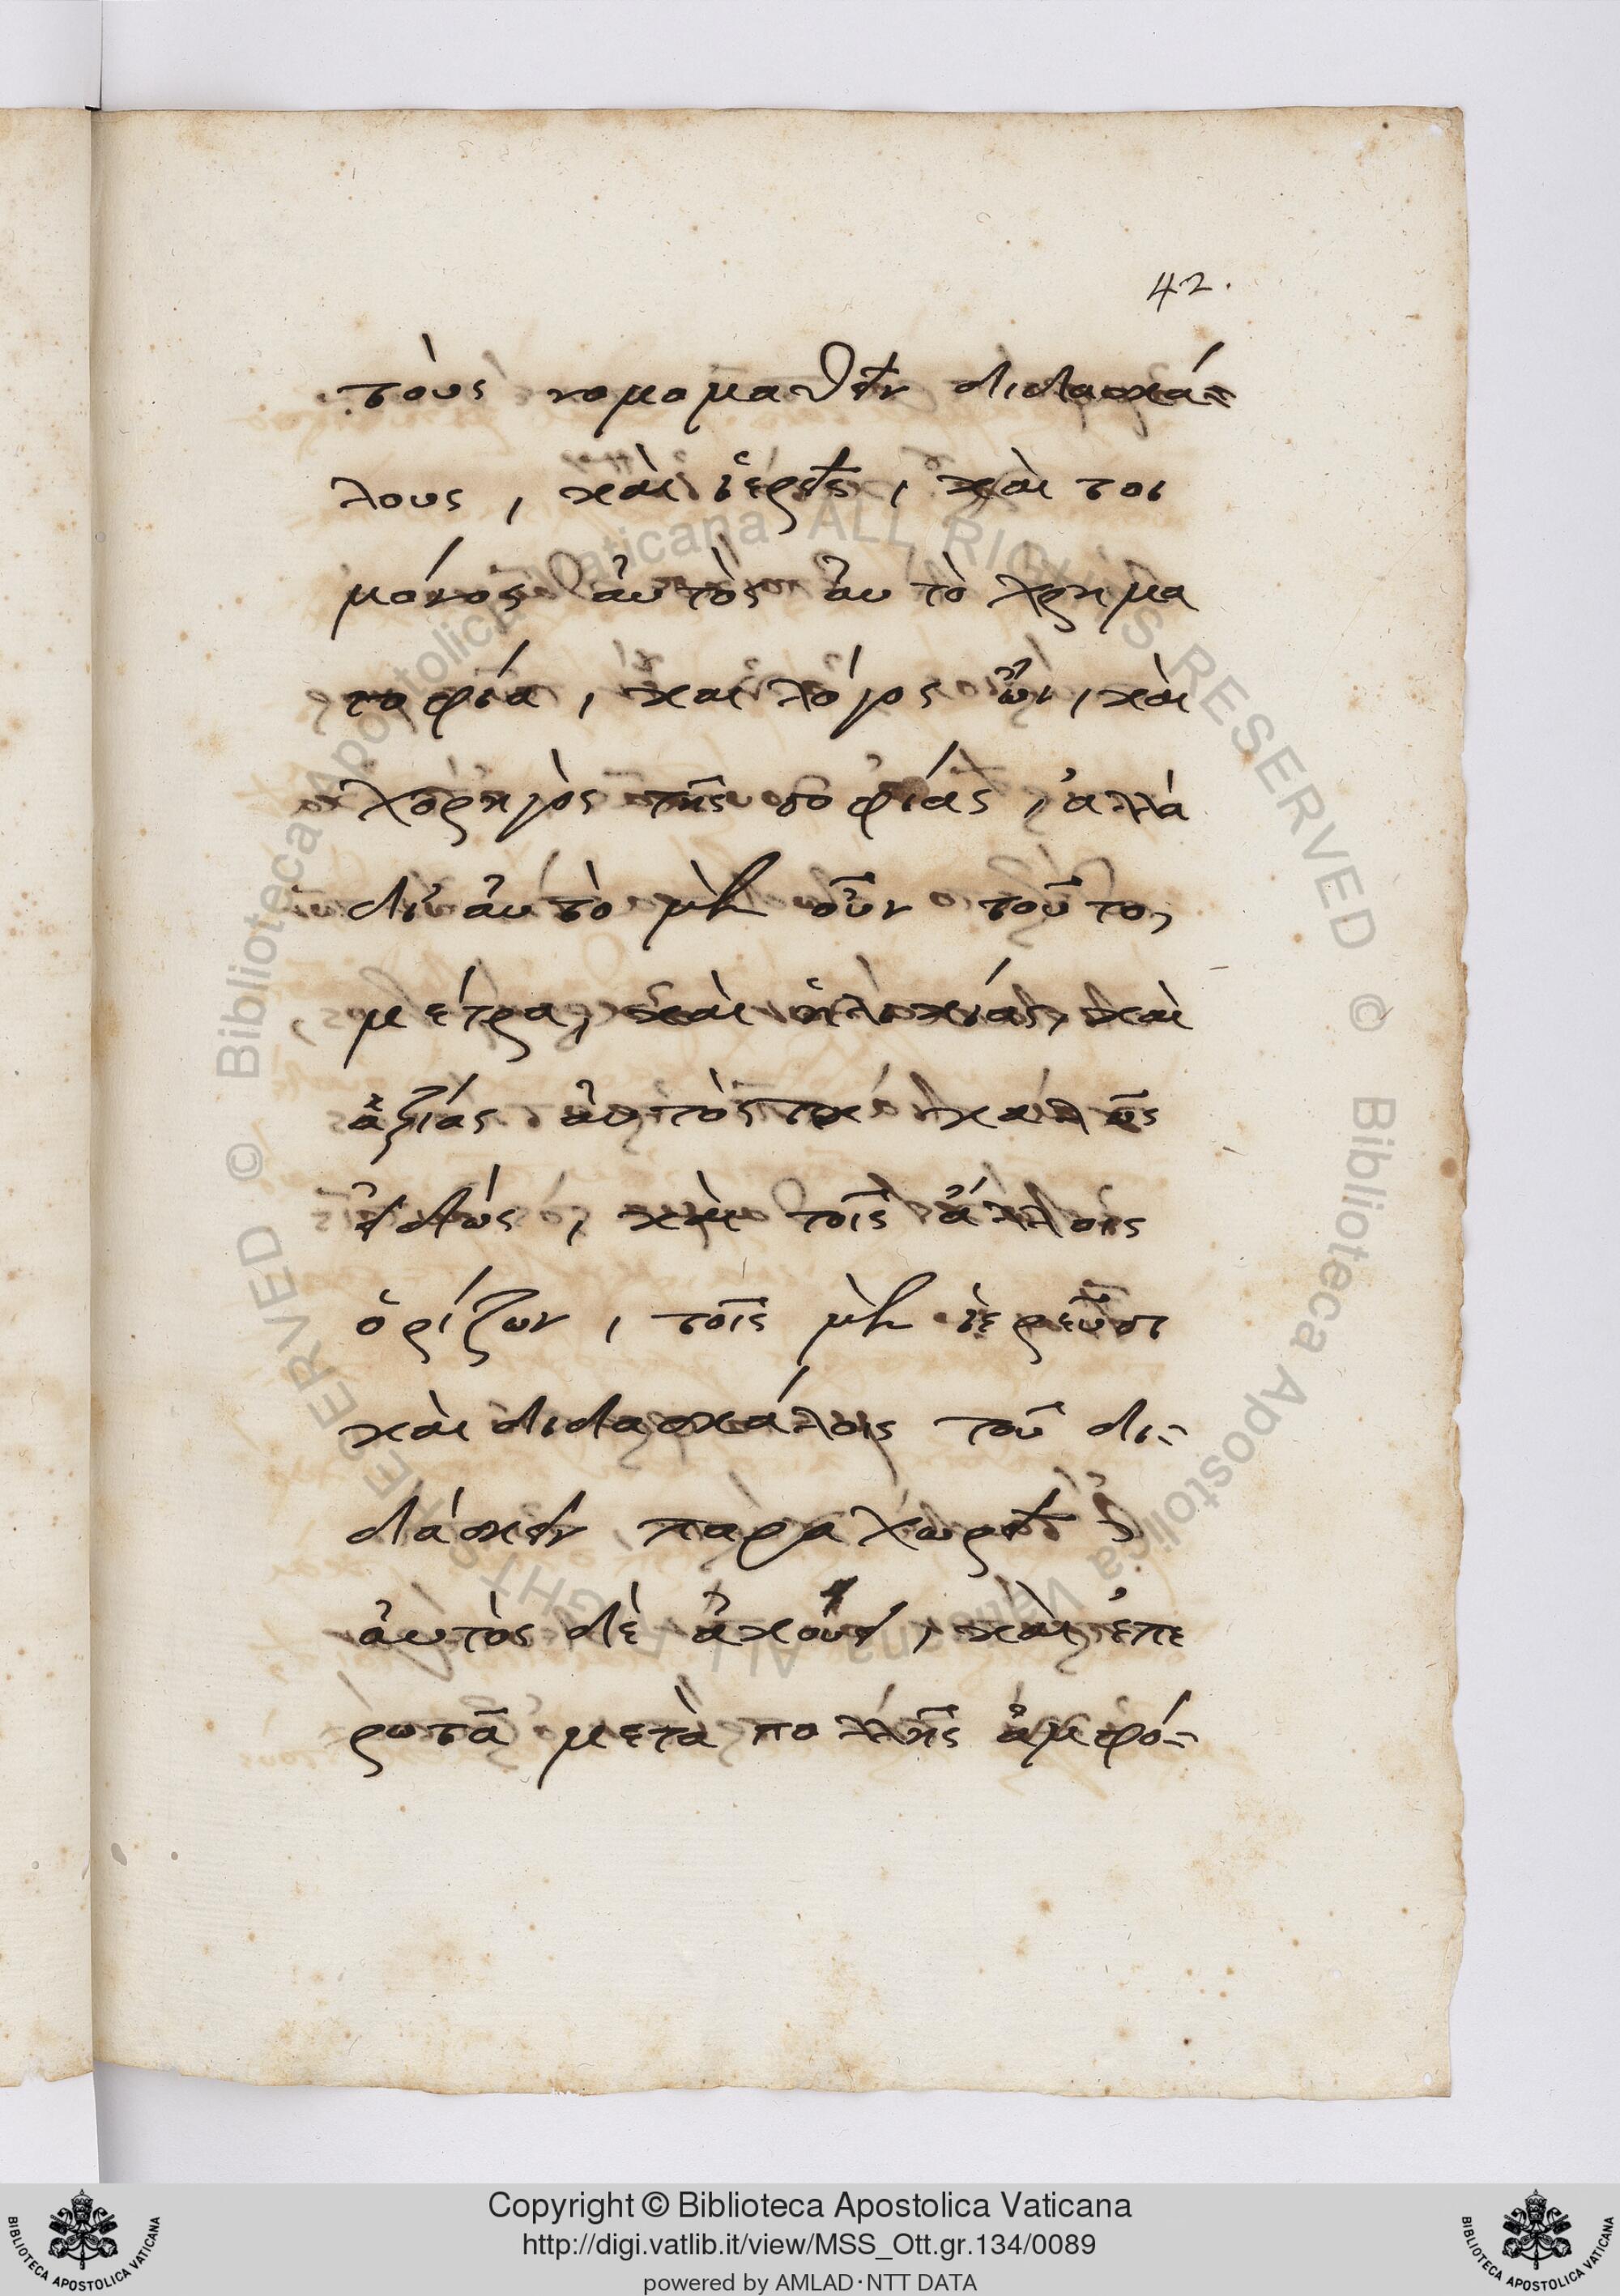 42.
τοὺς νομομαθεῖν διδασκά-
λους, καὶ ἱερεῖς, καὶ τοι
μόνος αὐτὸς αὐτὸ χρημα
σοφία, καὶ λόγος ὢν, καὶ
χορηγὸς τῆς σοφίας, ἀλλὰ
δι' αὐτὸ μὲν οὖν τοῦτο,
μέτρα, καὶ ἡλικίας, καὶ
ἀξίας αὐτὸς τε καλῶς
εἰδὼς, καὶ τοῖς ἄλλοις
ὁρίζων, τοῖς μὲν ἱερεῦσι
καὶ διδασκάλοις τοῦ δι-
δάσκειν παραχωρεῖ
αὐτὸς δὲ ἀκούει, καὶ ἐπε
ρωτᾶ μετὰ πολλῆς ἀμφό-
Copyright © Biblioteca Apostolica Vaticana
http://digi.vatlib.it/view/MSS_Ott.gr.134/0089
powered by AMLAD·NTT DATA
BIBLIOTECA APOSTOLICA VATICANA
BIBLIOTECA APOSTOLICA VATICANA
© Biblioteca Apostolica Vaticana ALL RIGHTS RESERVED
© Biblioteca Apostolica Vaticana ALL RIGHTS RESERVED